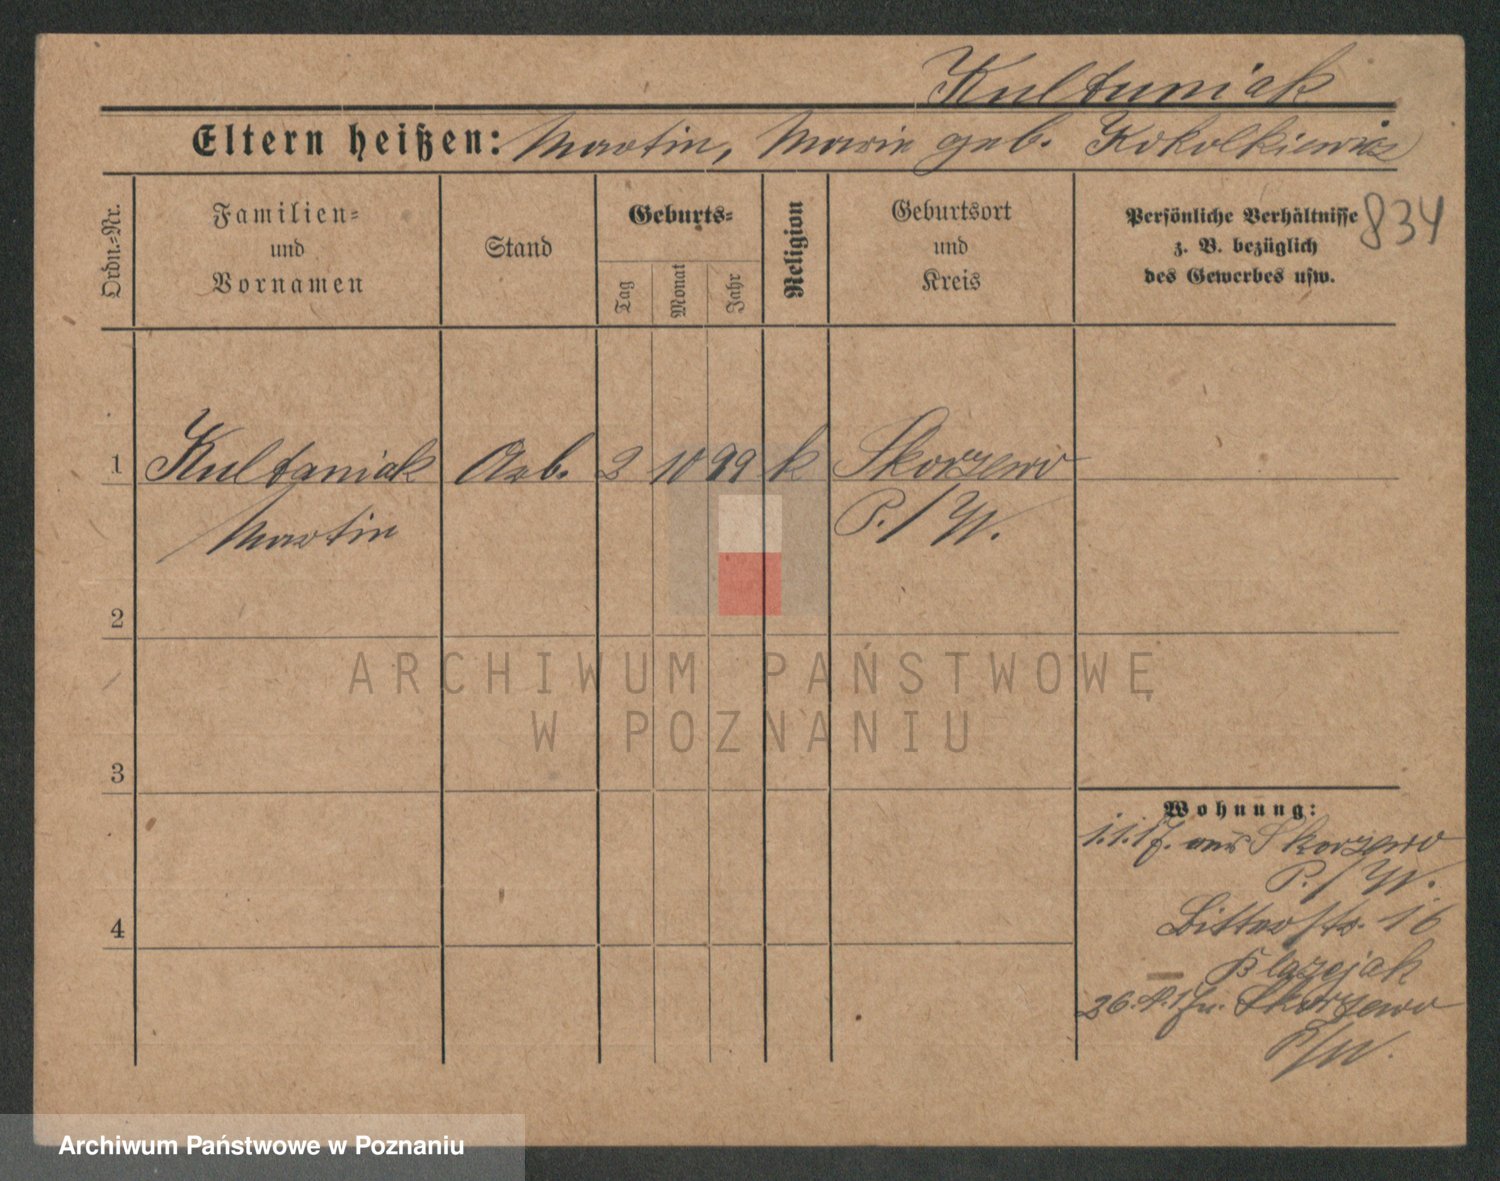 Kultuniak
Eltern heißen: Martin, Marie geb. Kokolkiewicz
Ordn.-Nr.
Familien-
und
Vornamen
Stand
Geburts-
Tag
Monat
Jahr
Religion
Geburtsort
und
Kreis
Persönliche Verhältnisse
z. B. bezüglich
des Gewerbes usw.
834
1 Kultaniak Arb. 2 10 99 k Skorzewo
Martin P./W.
2
ARCHIWUM PAŃSTWOWE
W POZNANIU
3
Wohnung:
1.1.17. aus Skorzewo
P./W.
16
4
Blazejak
26. Skorzewo
P/W.
Archiwum Państwowe w Poznaniu